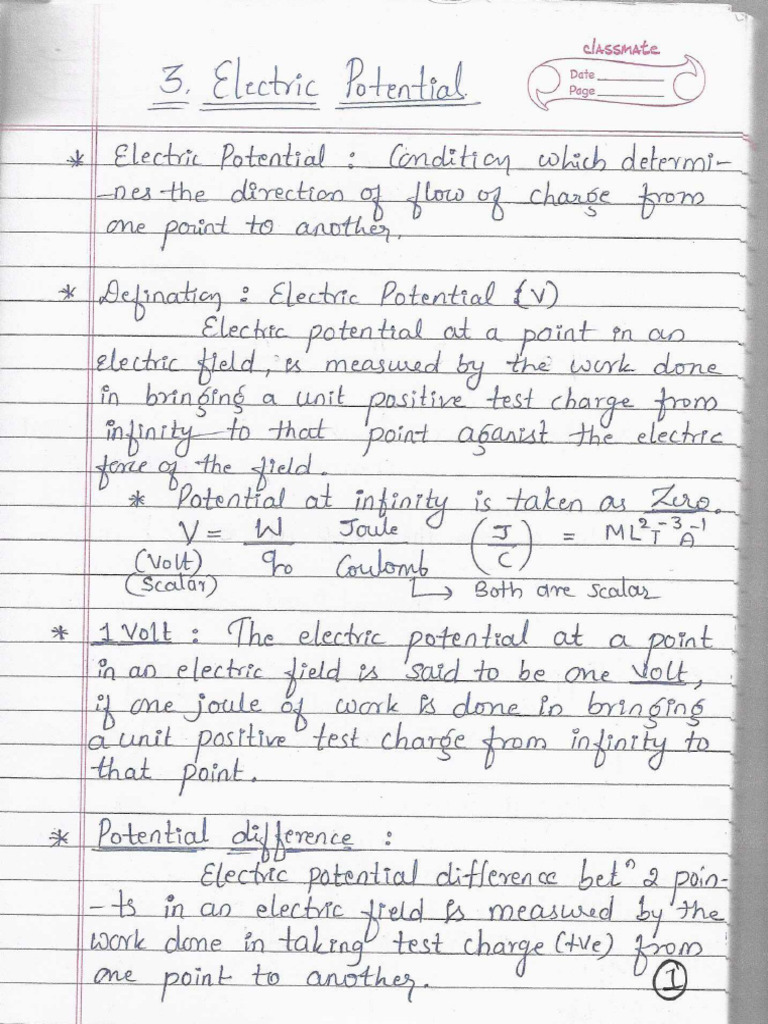 classmate
Date
Page
3. Electric Potential
* Electric Potential : Condition which determi-
-nes the direction of flow of charge from
one point to another.
* Defination : Electric Potential (V)
Electric potential at a point in an
electric field, is measured by the work done
in bringing a unit positive test charge from
infinity to that point aganist the electric
force of the field.
* Potential at infinity is taken as Zero.
V = W/q₀ Joule/Coulomb (J/C) = ML²T⁻³A⁻¹
(Volt)
(Scalar) ↳ Both are scalar
* 1 Volt : The electric potential at a point
in an electric field is said to be one Volt,
if one joule of work is done in bringing
a unit positive test charge from infinity to
that point.
* Potential difference :
Electric potential difference betⁿ 2 poin-
-ts in an electric field is measured by the
work done in taking test charge (+ve) from
one point to another.
1